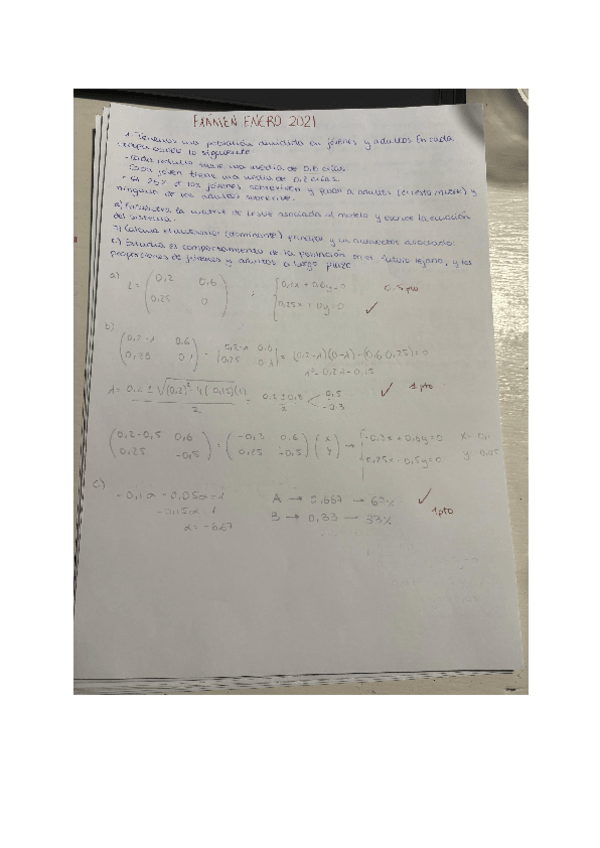 EXAMEN ENERO 2021
1. Tenemos una población dividida en jóvenes y adultos. En cada
lo siguiente
- Cada adulto una media de 0,6 crías.
Cada joven tiene una media de 0,2 crías.
- El 25% de los jóvenes sobreviven y pasan a adultos y
ninguno de los adultos sobrevive.
a) Encuentra la matriz de Leslie asociada al modelo y escribe la ecuación
del sistema.
b) Calcula el autovalor (dominante) principal y un autovector asociado.
c) Estudia el comportamiento de la población en el futuro lejano, y las
proporciones de jóvenes y adultos a largo plazo
a) L = (0,2 0,6 ; { 0,2x + 0,6y = 0 0,5 pto
0,25 0) 0,25x + 0y = 0 ✓
b)
(0,2-λ 0,6 | 0,2-λ 0,6 | = (0,2-λ)(0-λ) - (0,6·0,25) = 0
0,25 0,25 λ² - 0,2λ - 0,15
λ = 0,2 ± √(0,2)² - 4(0,15)(1) = 0,2 ± 0,8 < 0,5 ✓ 1 pto
2 2 -0,3
(0,2-0,5 0,6 = (-0,3 0,6 (x → { -0,3x + 0,6y = 0
0,25 -0,5) 0,25 -0,5) y) 0,25x - 0,5y = 0
c)
-0,1α - 0,05α = 1 A → 0,667 → ✓
-0,15α = 1 B → 0,33 → 33% 1 pto
α = -6,67